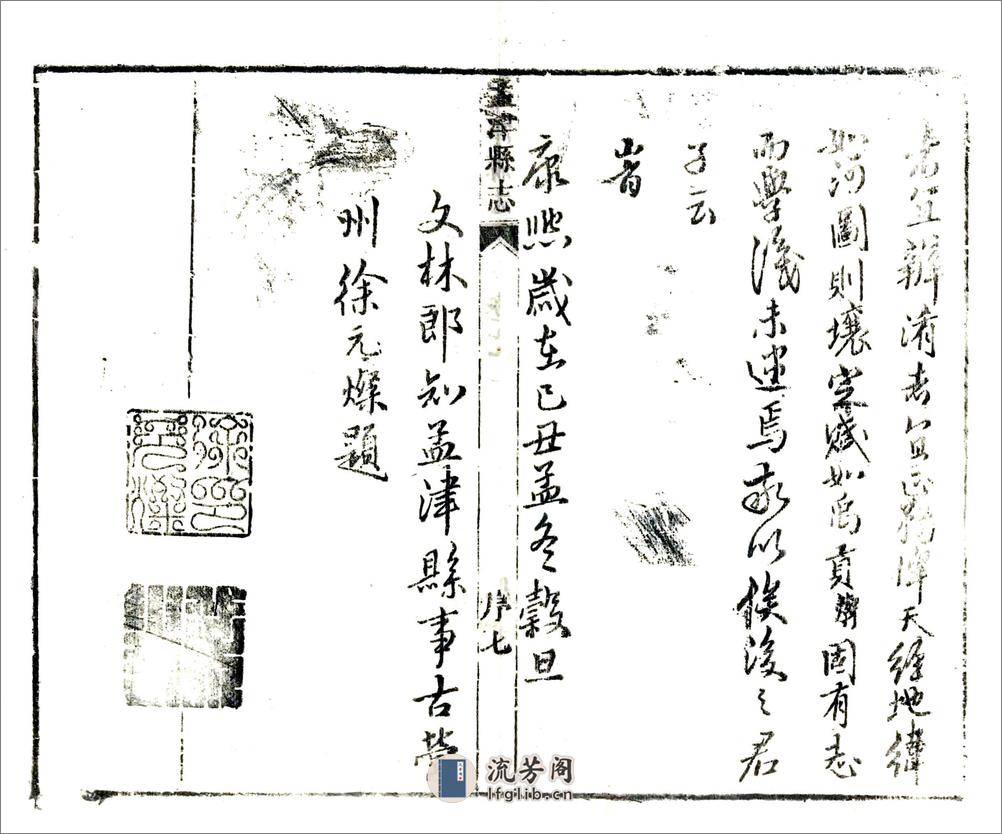 辨淆者宜正渾天經地緯
如河圖則壤定賦如禹貢固有志
而學淺未逮焉敬以俟後之君
子云
旹
康熙歲在己丑孟冬穀旦
孟津縣志
序七
文林郎知孟津縣事古營
州徐元燦題
徐印
元燦
流芳阁
lfglib.cn